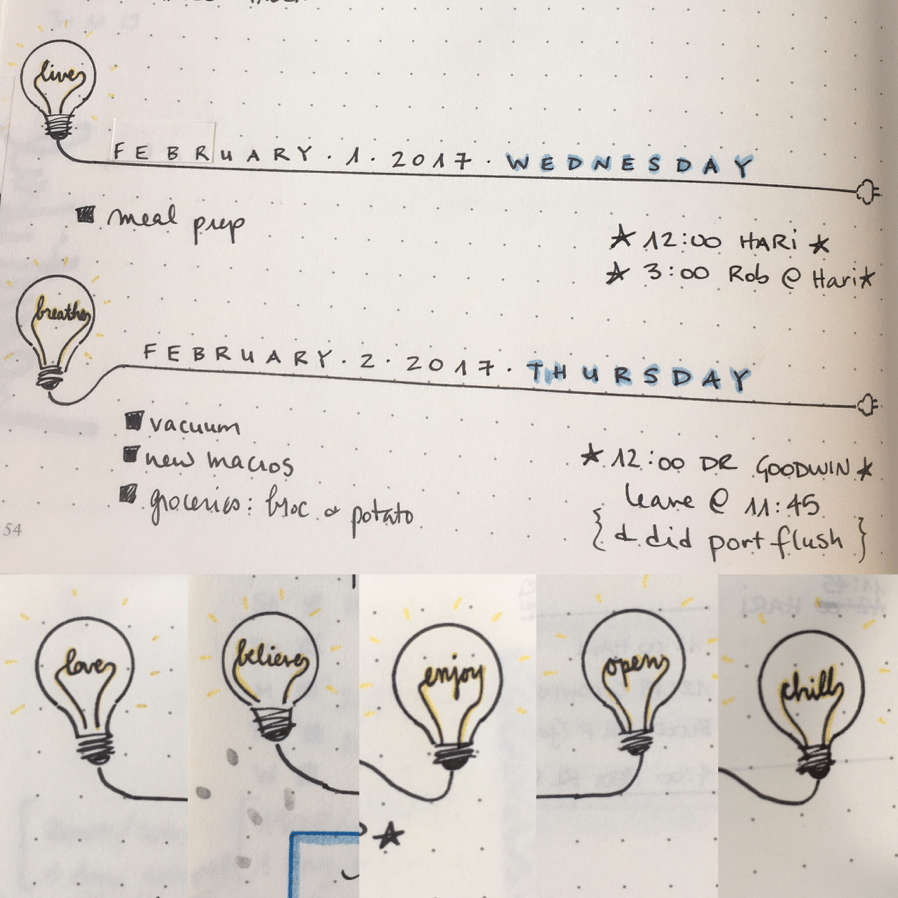 live
FEBRUARY . 1 . 2017 . WEDNESDAY
meal prep
★ 12:00 HARI ★
★ 3:00 Rob @ Hari ★
breathe
FEBRUARY . 2 . 2017 . THURSDAY
vacuum
new macros
groceries: broc & potato
★ 12:00 DR GOODWIN ★
leave @ 11:45
{ & did port flush }
54
love
believe
enjoy
open
chill